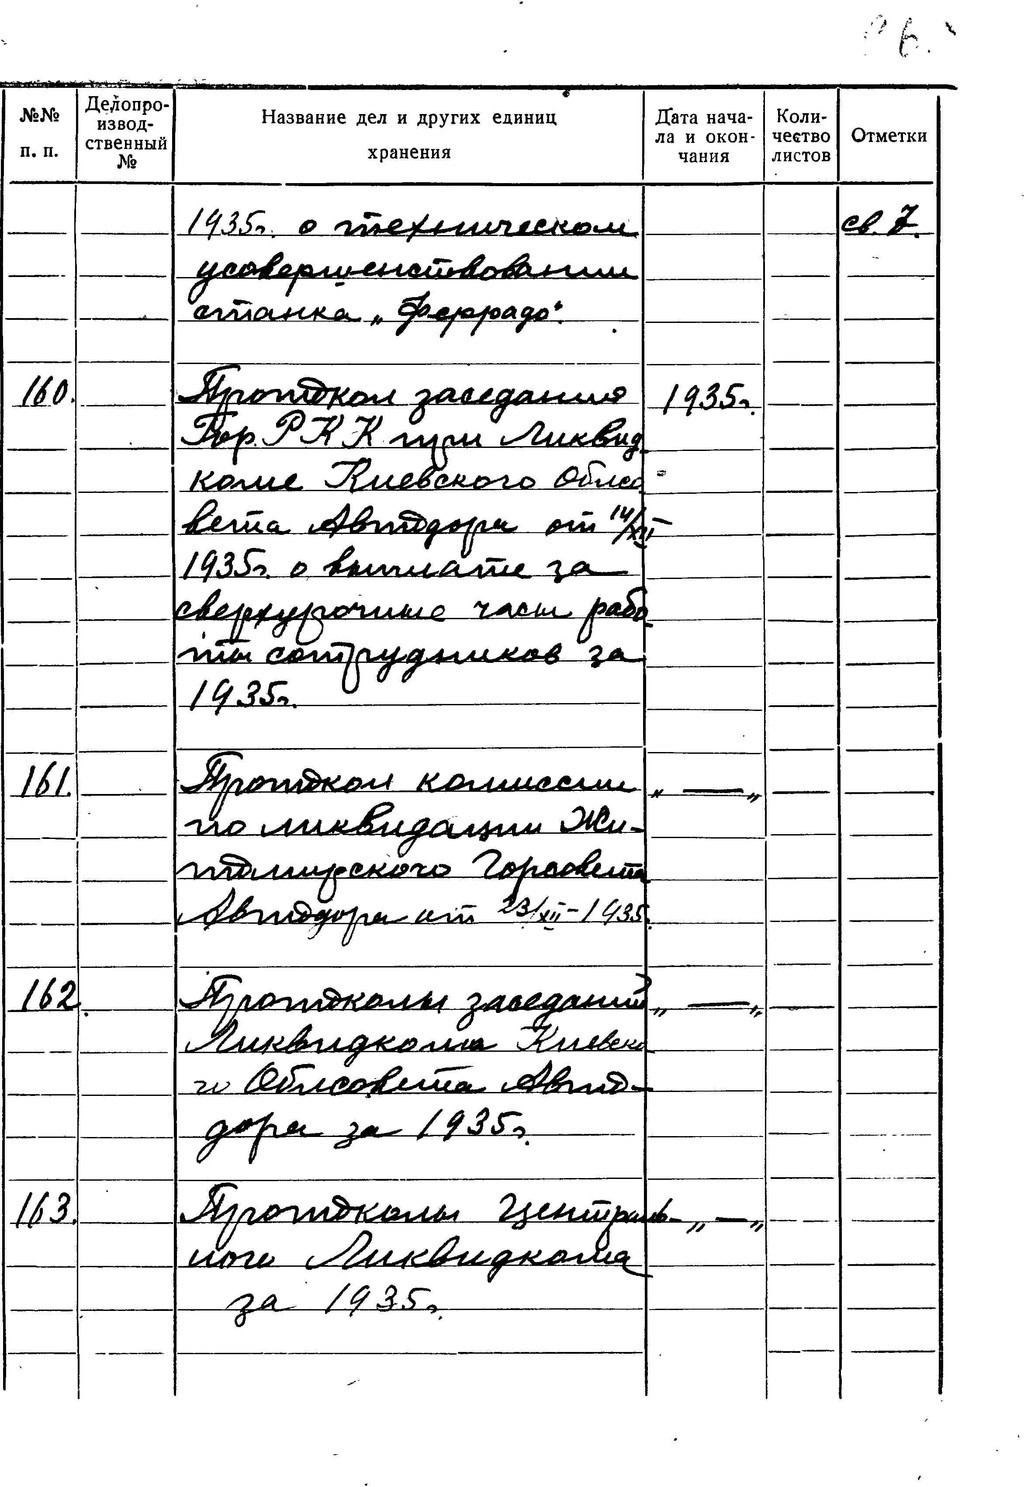 6.
№№ п. п.
Делопро-
извод-
ственный
№
Название дел и других единиц
хранения
Дата нача-
ла и окон-
чания
Коли-
чество
листов
Отметки
1935г. о техническом св. 7.
усовершенствовании
станка „Феррадо“.
160. Протокол заседания 1935г.
Гор. Р К К при Ликвид
коме Киевского Облсо
вета Автодора от 14/XII
1935г. о выплате за
сверхурочные часы рабо
ты сотрудников за
1935г.
161. Протокол комиссии „ — „
по ликвидации Жи-
томирского Горсовета
Автодора от 23/XII-1935
162. Протоколы заседаний „ — „
Ликвидкома Киевско
го Облсовета Авто-
дора за 1935г.
163. Протоколы Централь- „ — „
ного Ликвидкома
за 1935г.